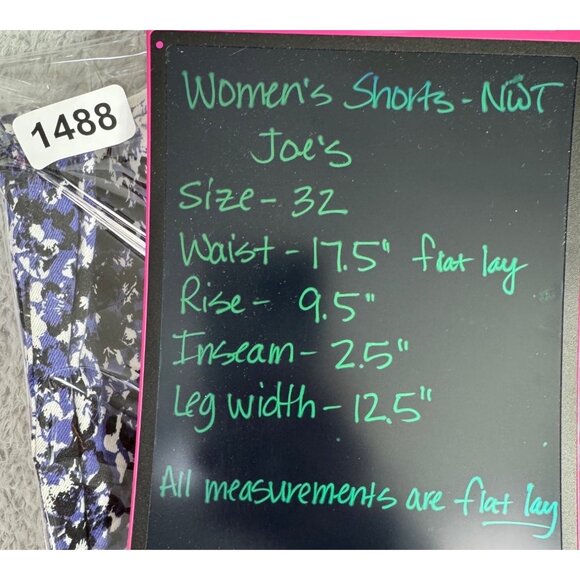 1488
Women's Shorts - NWT
Joe's
Size - 32
Waist - 17.5" flat lay
Rise - 9.5"
Inseam - 2.5"
Leg width - 12.5"
All measurements are flat lay